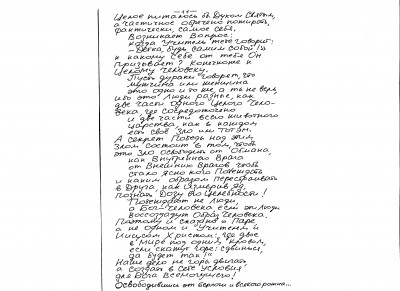 — 11 —
Целое питалось бы Духом Святым,
а частичное обречено пожирать,
фактически, самое себя.
Возникает Вопрос:
когда Учитель тебе говорит:
– Дètка, будь самим собой!»
к какому Себе от тебя Он
Призывает? Конечно же к
Целому Человеку.
Пусть дураки говорят, что
Мужчина или женщина
это одно и то же, а ты не верь,
ибо это люди разные, как
две части одного Целого Чело-
века, где сосредоточено
и две части всего животного
царства, как в каждом
есть своё Зло или Тотем.
А секрет Победы над этим
Злом состоит в том, чтобы
это Зло освободить от Обмана,
как Внутреннего Врага
от Внешних Врагов, чтобы
стало ясно кого Побеждать
и каким образом перестраивать
в Друга, как Измерив Яд,
Познать Дозу его Целебности!
Побеждает не Люди,
а Бог-Человека если эти люди
Воссоздадут Образ Человека.
Поэтому и сказано о Паре
а не одном и Учителем и
Иисусом Христом: «где двое
в Мире под одним кровом,
если скажут горе: сдвинься,
да будет так!»
Наше дело не горы двигать,
а создать в себе условия
для Бога Всемогущего!
Освободившись от бороны и всякого рожна...